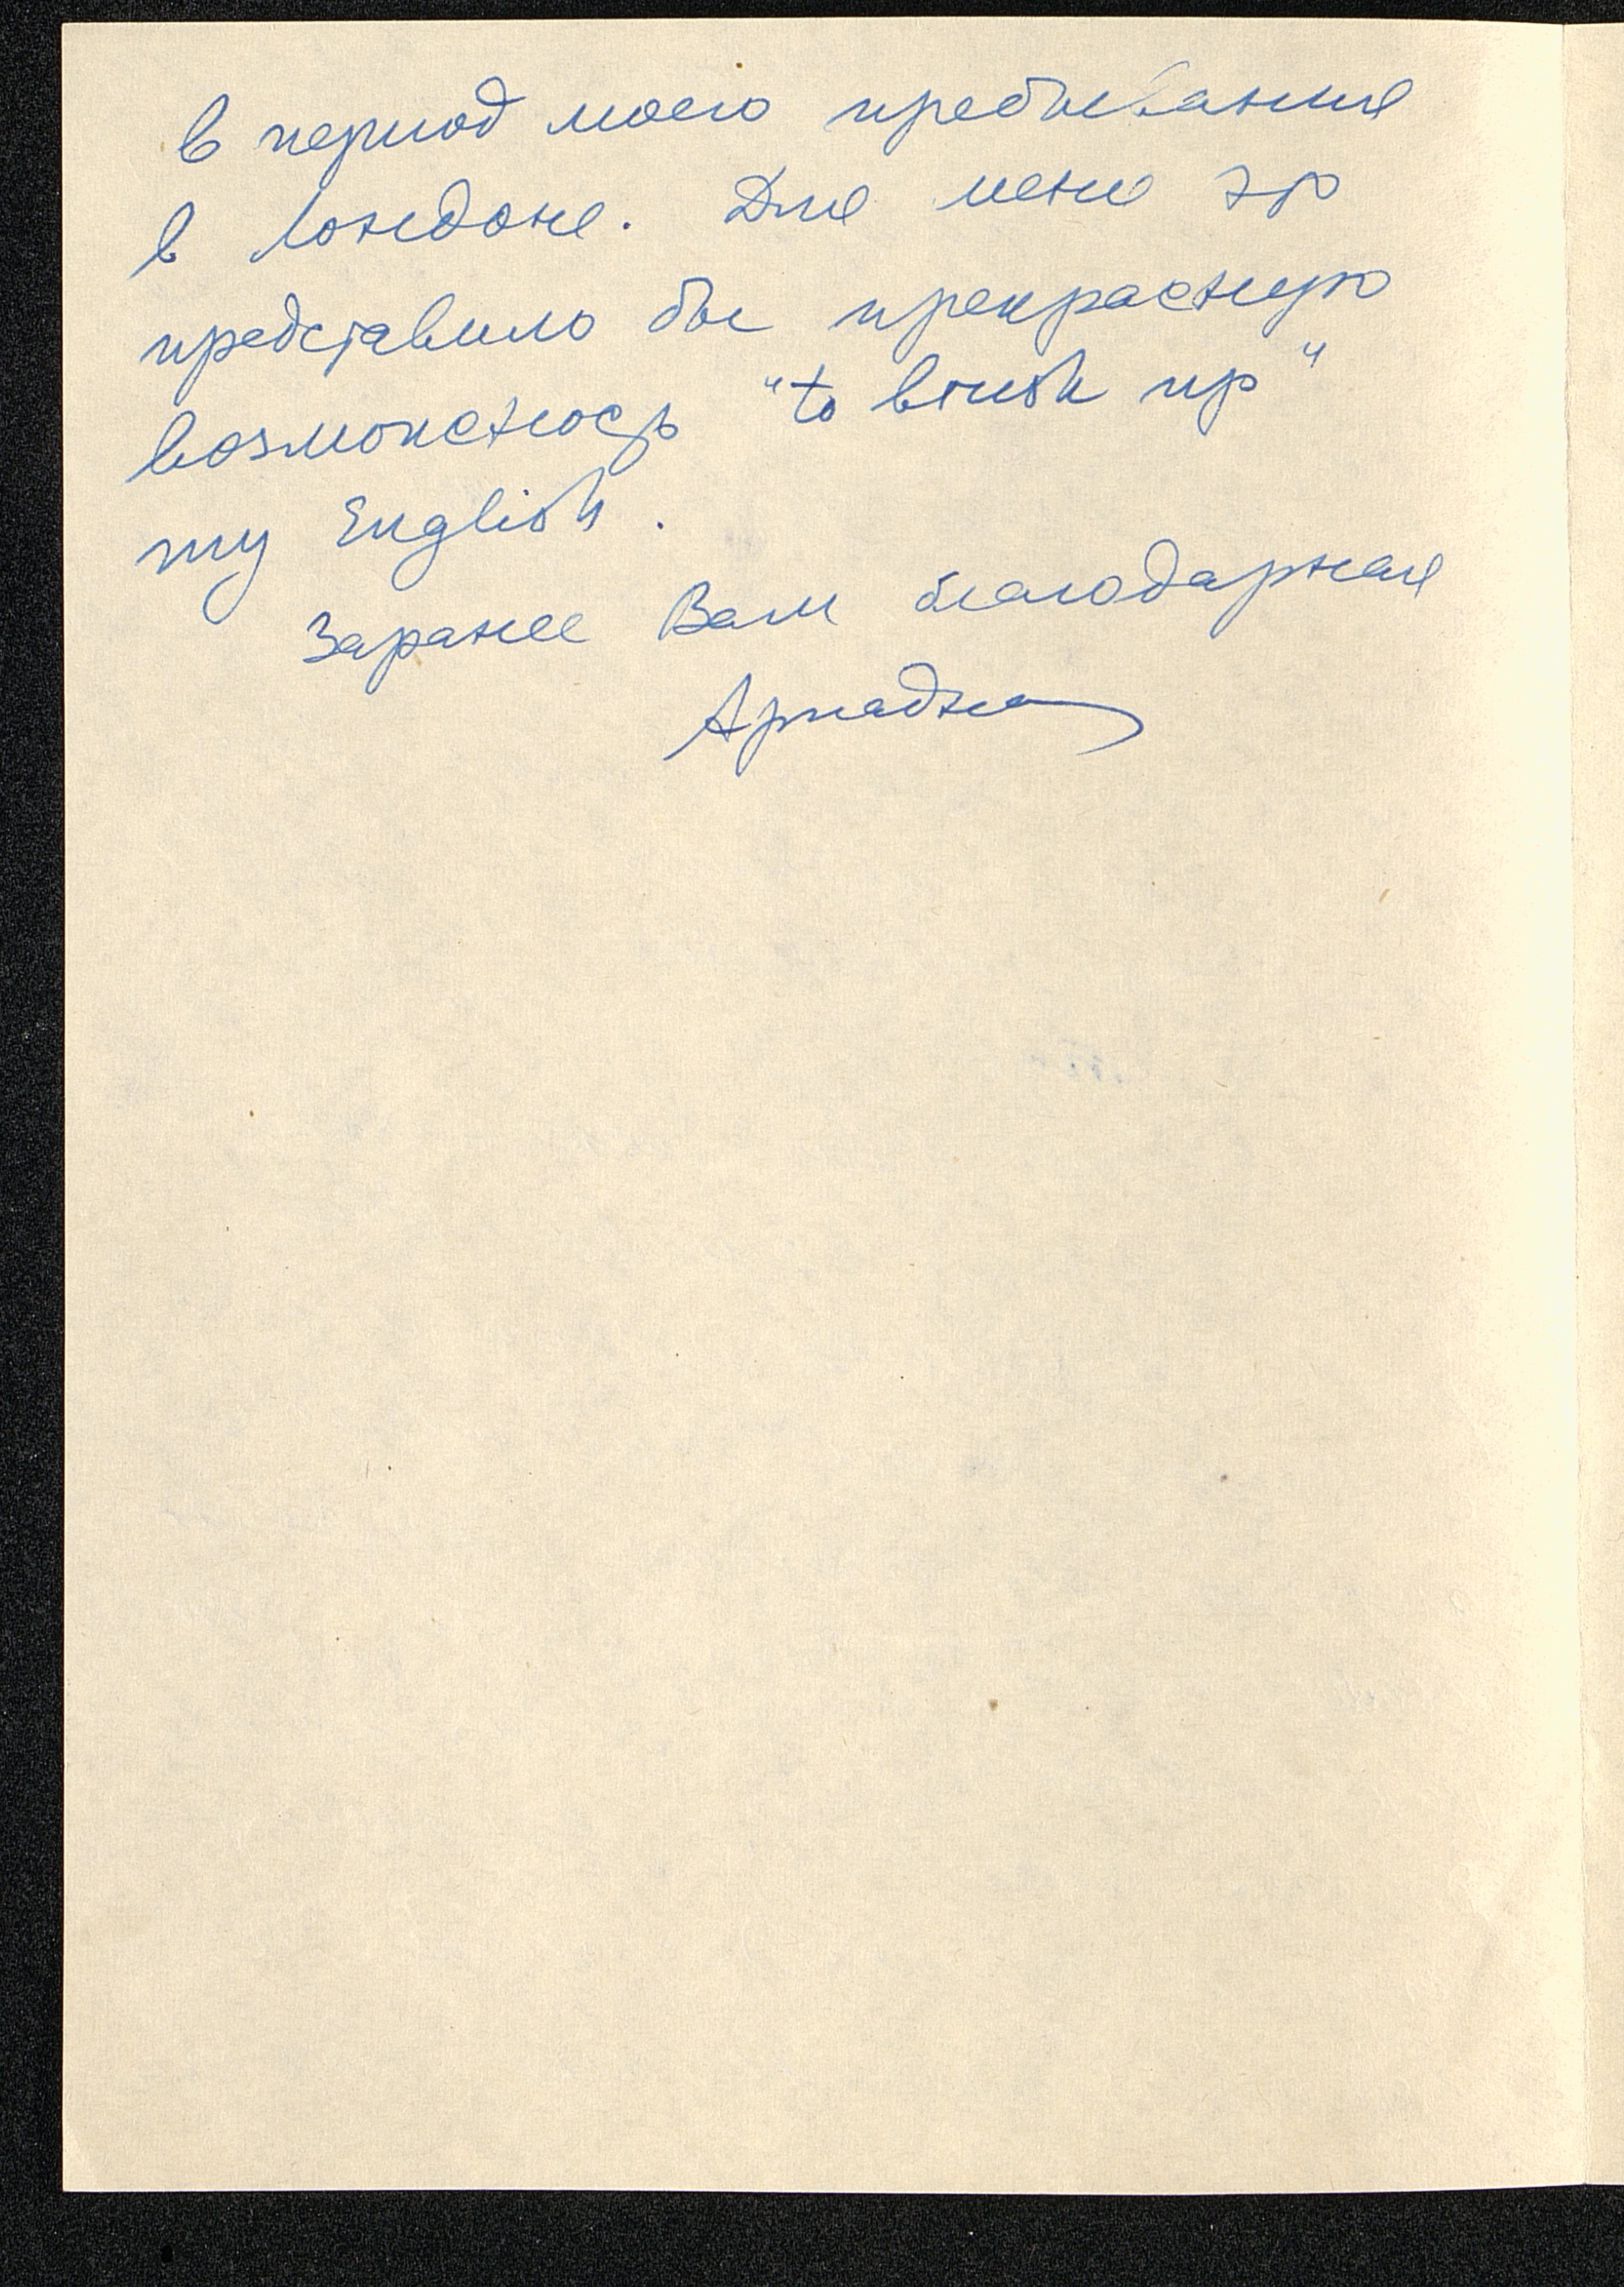 в период моего пребывания
в Лондоне. Для меня это
представило бы прекрасную
возможность "to brush up"
my English.
Заранее Вам благодарная
Ариадна